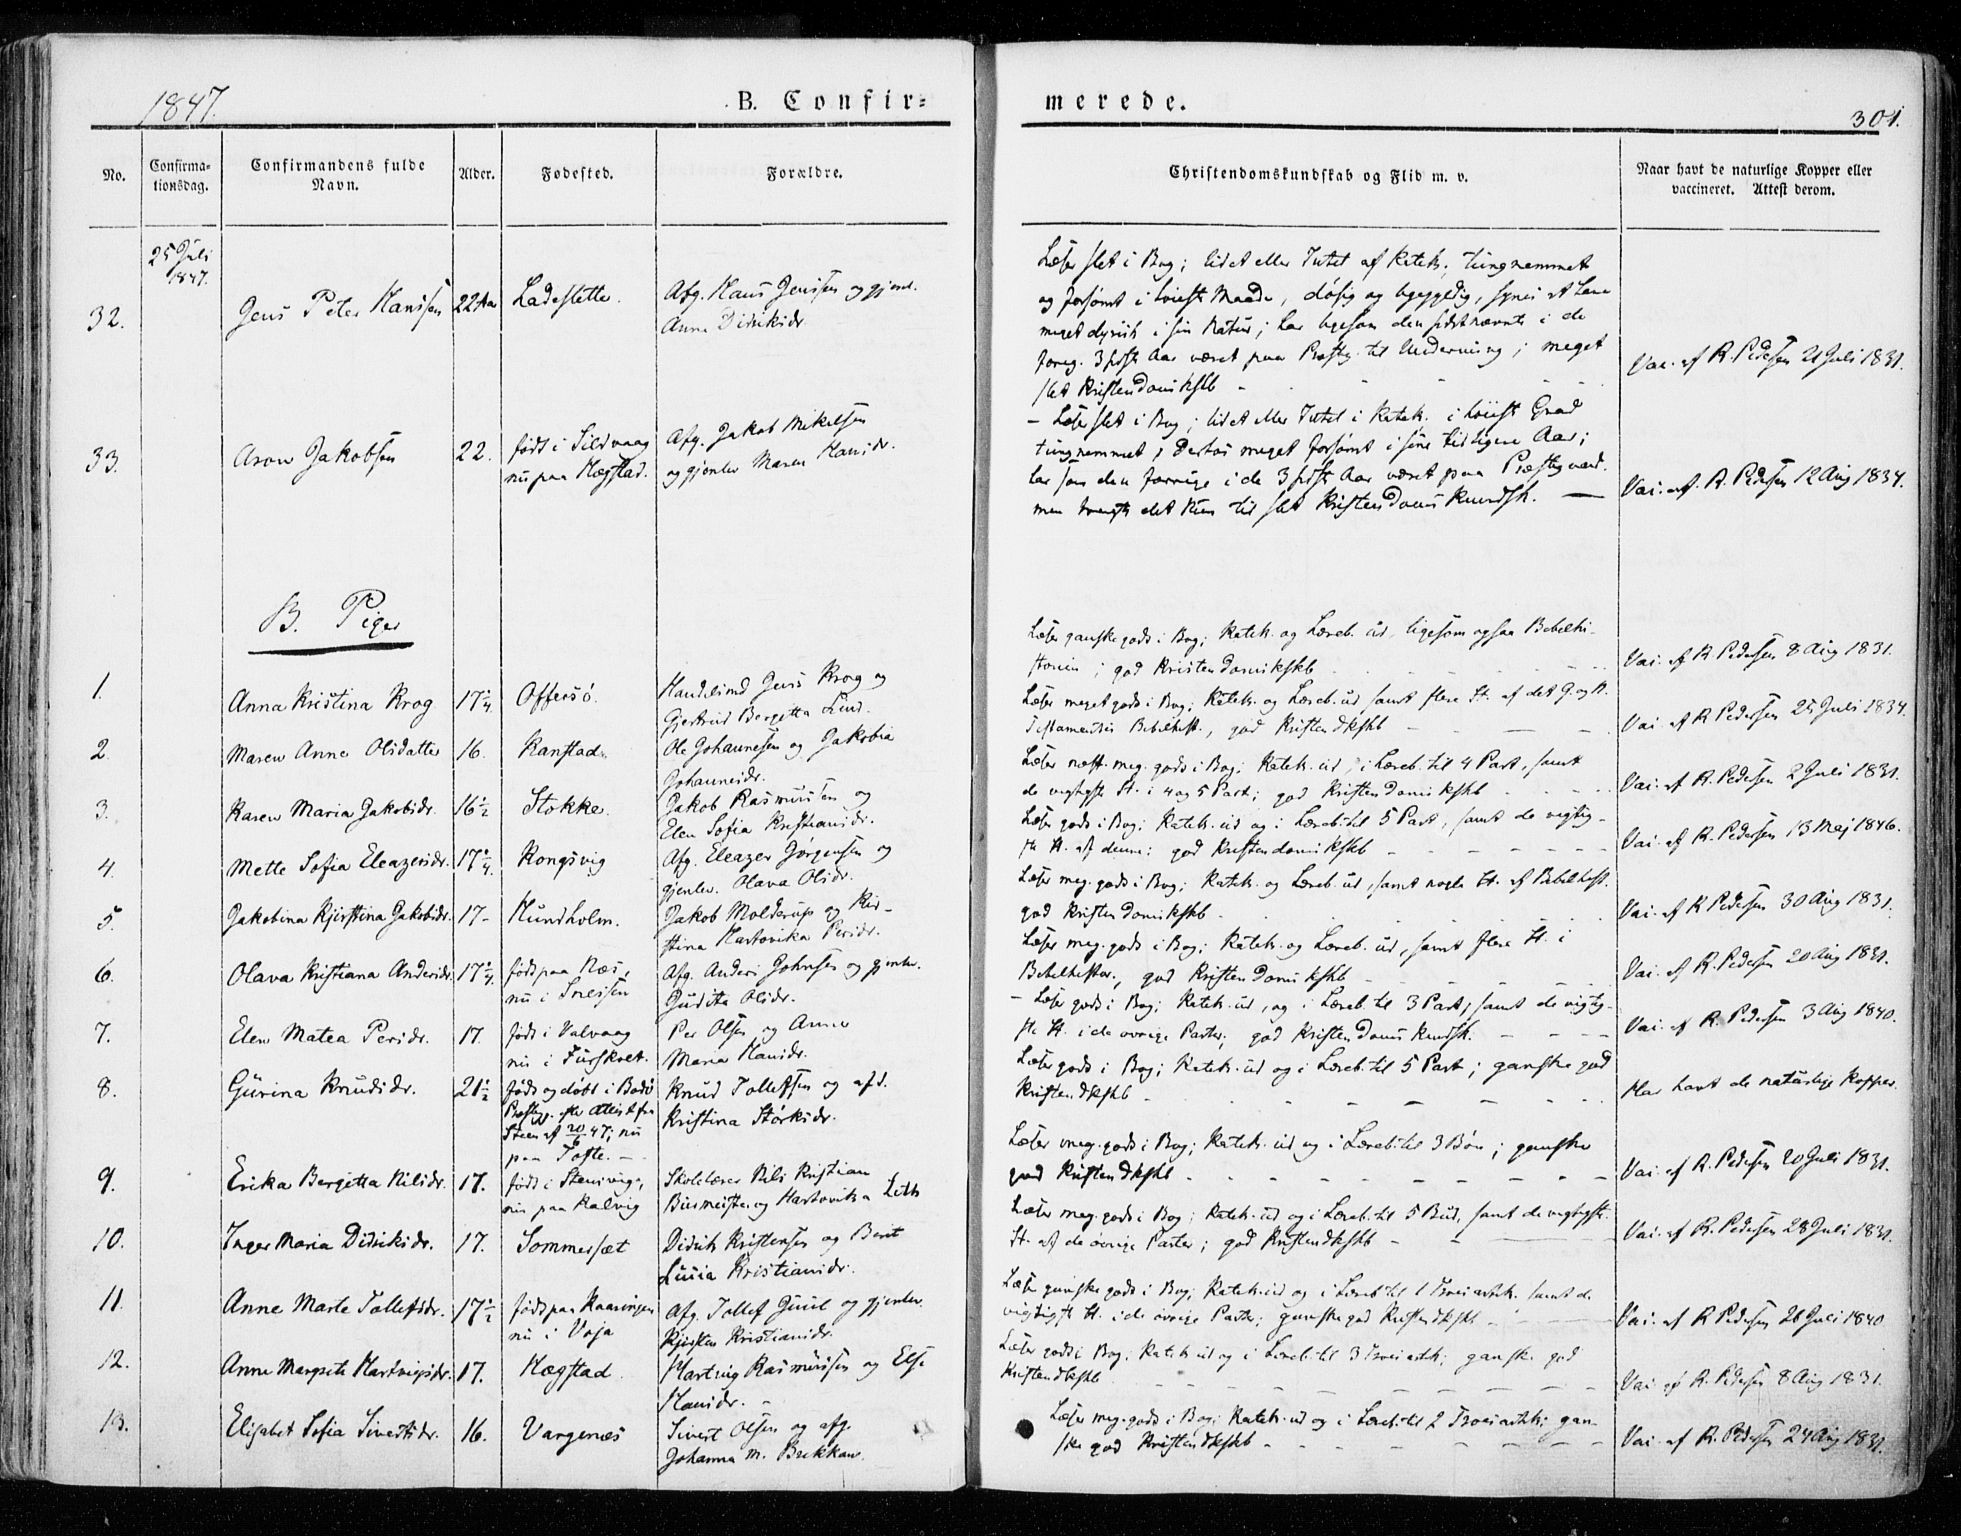 1847.
B. Confir-
merede.
301.
No.
Confirma-
tionsdag.
Confirmandens fulde
Navn.
Alder.
Fødested.
Forældre.
Christendomskundskab og Flid m. v.
Naar havt de naturlige Kopper eller
vaccineret. Attest derom.
25 Juli
1847.
32.
Jens Peter Hanssen
22 Aar
Ladeslette.
Afg. Hans Jenssen og gjenl.
Anne Didriksdr.
Læser slet i Bog; lidet eller Intet af Katek; tungnemmet
og forsømt i høieste Maade, døsig og ligegyldig, synes at have
meget dyrisk i sin Natur; har ligesom den sidstnævnte i de
foreg. 3 sidste Aar været paa Præstg. til Underviisning; meget
slet Kristendomskskb -
Vac. af R. Pedersen 21 Juli 1831.
33.
Aron Jakobsen
22.
født i Sildvaag
nu paa Hægstad.
Afg. Jakob Mikelsen
og gjenlev Maren Hansdr.
- Læser slet i Bog; lidet eller Intet i Katek. i høieste Grad
tungnemmet; Dertos meget forsømt i sine tidligere Aar;
har som den forrige i de 3 sidste Aar været paa Præstegaard.
men bragte det kun til slet Kristendomskundsk. -
Vac. af. R. Pedersen 12 Aug 1834.
B. Piger
1.
Anna Kristina Krog
17 1/4
Offersø.
Handelsmd Jens Krog og
Gjertrud Bergetta Lund.
Læser ganske godt i Bog; Katek. og Læreb. ud, ligesom ogsaa Bibelhi-
storien; god Kristendomskskb
Vac. af R Pedersen 8 Aug 1831.
2.
Maren Anne Olsdatter
16.
Kanstad.
Ole Johannesen og Jakobia
Johannesdr.
Læser meget godt i Bog; Katek. og Læreb. ud samt flere St. af det G. og N.
Testamentes Bibelhist., god Kristendkskb
Vac. af R Pedersen 25 Juli 1834.
3.
Karen Maria Jakobsdr.
16 1/2
Stokke.
Jakob Rasmussen og
Elen Sofia Kristiansdr.
Læser næst. meg. godt i Bog; Katek. ud, i Læreb. til 4 Part, samt
de vigtigste St. i 4 og 5 Part; god Kristendomskskb
Vac. af R. Pedersen 2 Juli 1831.
4.
Mette Sofia Eleazersdr.
17 1/4.
Kongsvig
Afg. Eleazer Jørgensen og
gjenlev. Olava Olsdr.
Læser godt i Bog; Katek. ud og i Læreb. til 5 Part, samt de vigtig-
ste St. af denne; god Kristendomskskb
Vac. af R. Pedersen 13 Maj 1846.
5.
Jakobina Kjerstina Jakobsdr.
17-
Hundholm.
Jakob Molderup og Kir-
stina Hartvika Persdr.
Læser meg. godt i Bog; Katek. og Læreb. ud, samt nogle St. af Bibelhist.
god Kristendomskskb
Vac. af R Pedersen 30 Aug 1831.
6.
Olava Kristiana Andersdr.
17 1/4.
født paa Næs,
nu i Sneisen
Afg. Anders Johnsen og gjenlev.
Judita Olsdr.
Læser meg. godt i Bog; Katek. og Læreb. ud, samt flere St. i
Bibelhistor., god Kristendomskskb
Vac. af R. Pedersen 20 Aug 1831.
7.
Elen Matea Persdr.
17.
født i Valvaag
nu i Furskvet.
Per Olsen og Anne
Maria Hansdr.
- Læser godt i Bog; Katek. ud, og i Læreb. til 3 Part, samt de vigtig-
ste St. i de øvrige Parter; god Kristendomskundsk.
Vac. af R. Pedersen 3 Aug 1840.
8.
Gurina Knudsdr.
21 1/2
født og døbt i Bodø
Præstgj. efter Attest fra
Steen af 20/6 47; nu
paa Tofte. -
Knud Tollefsen og afd.
Kristina Størksdr.
Læser godt i Bog; Katek. ud og i Læreb. til 5 Part; ganske god
Kristendkskb
Har havt de naturlige Kopper.
9.
Erika Bergetta Nilsdr.
17.
født i Stensvig,
nu paa Kalvig
Skolelærer Nils Kristian
Busmeister og Hartvika Leth
Læser meg. godt i Bog; Katek. ud og i Læreb. til 3 Bøn; ganske
god Kristendkskb
Vac. af R. Pedersen 20 Juli 1831.
10.
Inger Maria Didriksdr.
17.
Sommersæt
Didrik Kristensen og Berit
Lucia Kristiansdr.
Læser meg. godt i Bog; Katek. ud og i Læreb. til 5 Bud, samt de vigtigste
St. af de øvrige Parter; god Kristendkskb -
Vac. af R. Pedersen 28 Juli 1831.
11.
Anne Marte Tollefsdr.
17 1/2
født paa Kaaringen
nu i Vaja
Afg. Tollef Juul og gjenlev.
Kjersten Kristiansdr.
Læser ganske godt i Bog; Katek. ud og i Læreb. til 1 Troesartk. samt de
vigtigste St. i de øvrige Parter; ganske god Kristendkskb
Vac. af R Pedersen 28 Juli 1840
12.
Anne Margrete Hartvigsdr.
17.
Hægstad
Hartvig Rasmussen og Else
Hansdr.
Læser godt i Bog; Katek. ud og i Læreb. til 3 Troesartk; ganske god
Kristendkskb
Vac. af R. Pedersen 8 Aug 1831.
13.
Elisabet Sofia Sivertsdr.
16.
Vargenæs
Sivert Olsen og afg.
Johanna M. Brekkan.
Læser meg. godt i Bog; Katek. ud og i Læreb. til 2 Troesartk; gan-
ske god Kristendkskb
Vac. af R. Pedersen 24 Aug 1831.